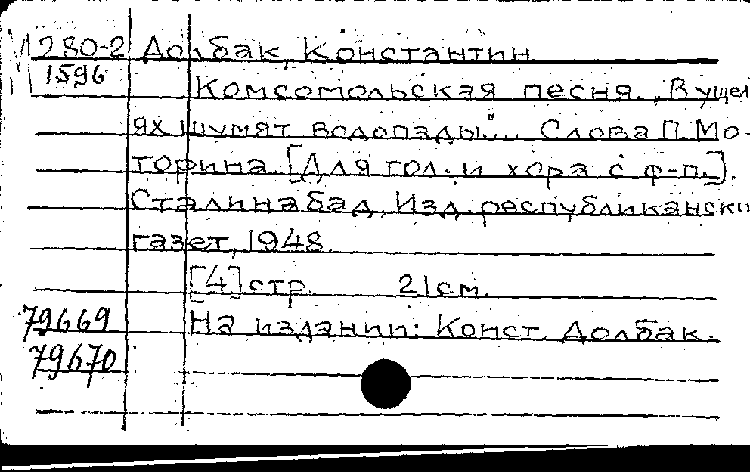 М 280-2 Долбак, Константин
1596 Комсомольская песня. „В ущел
ях шумят водопады"... Слова П. Мо-
торина. [Для гол. и хора с ф-п.].
Сталинабад, Изд. республикански
газет, 1948.
[4] стр. 21 см.
79669 На издании: Конст. Долбак.
79670